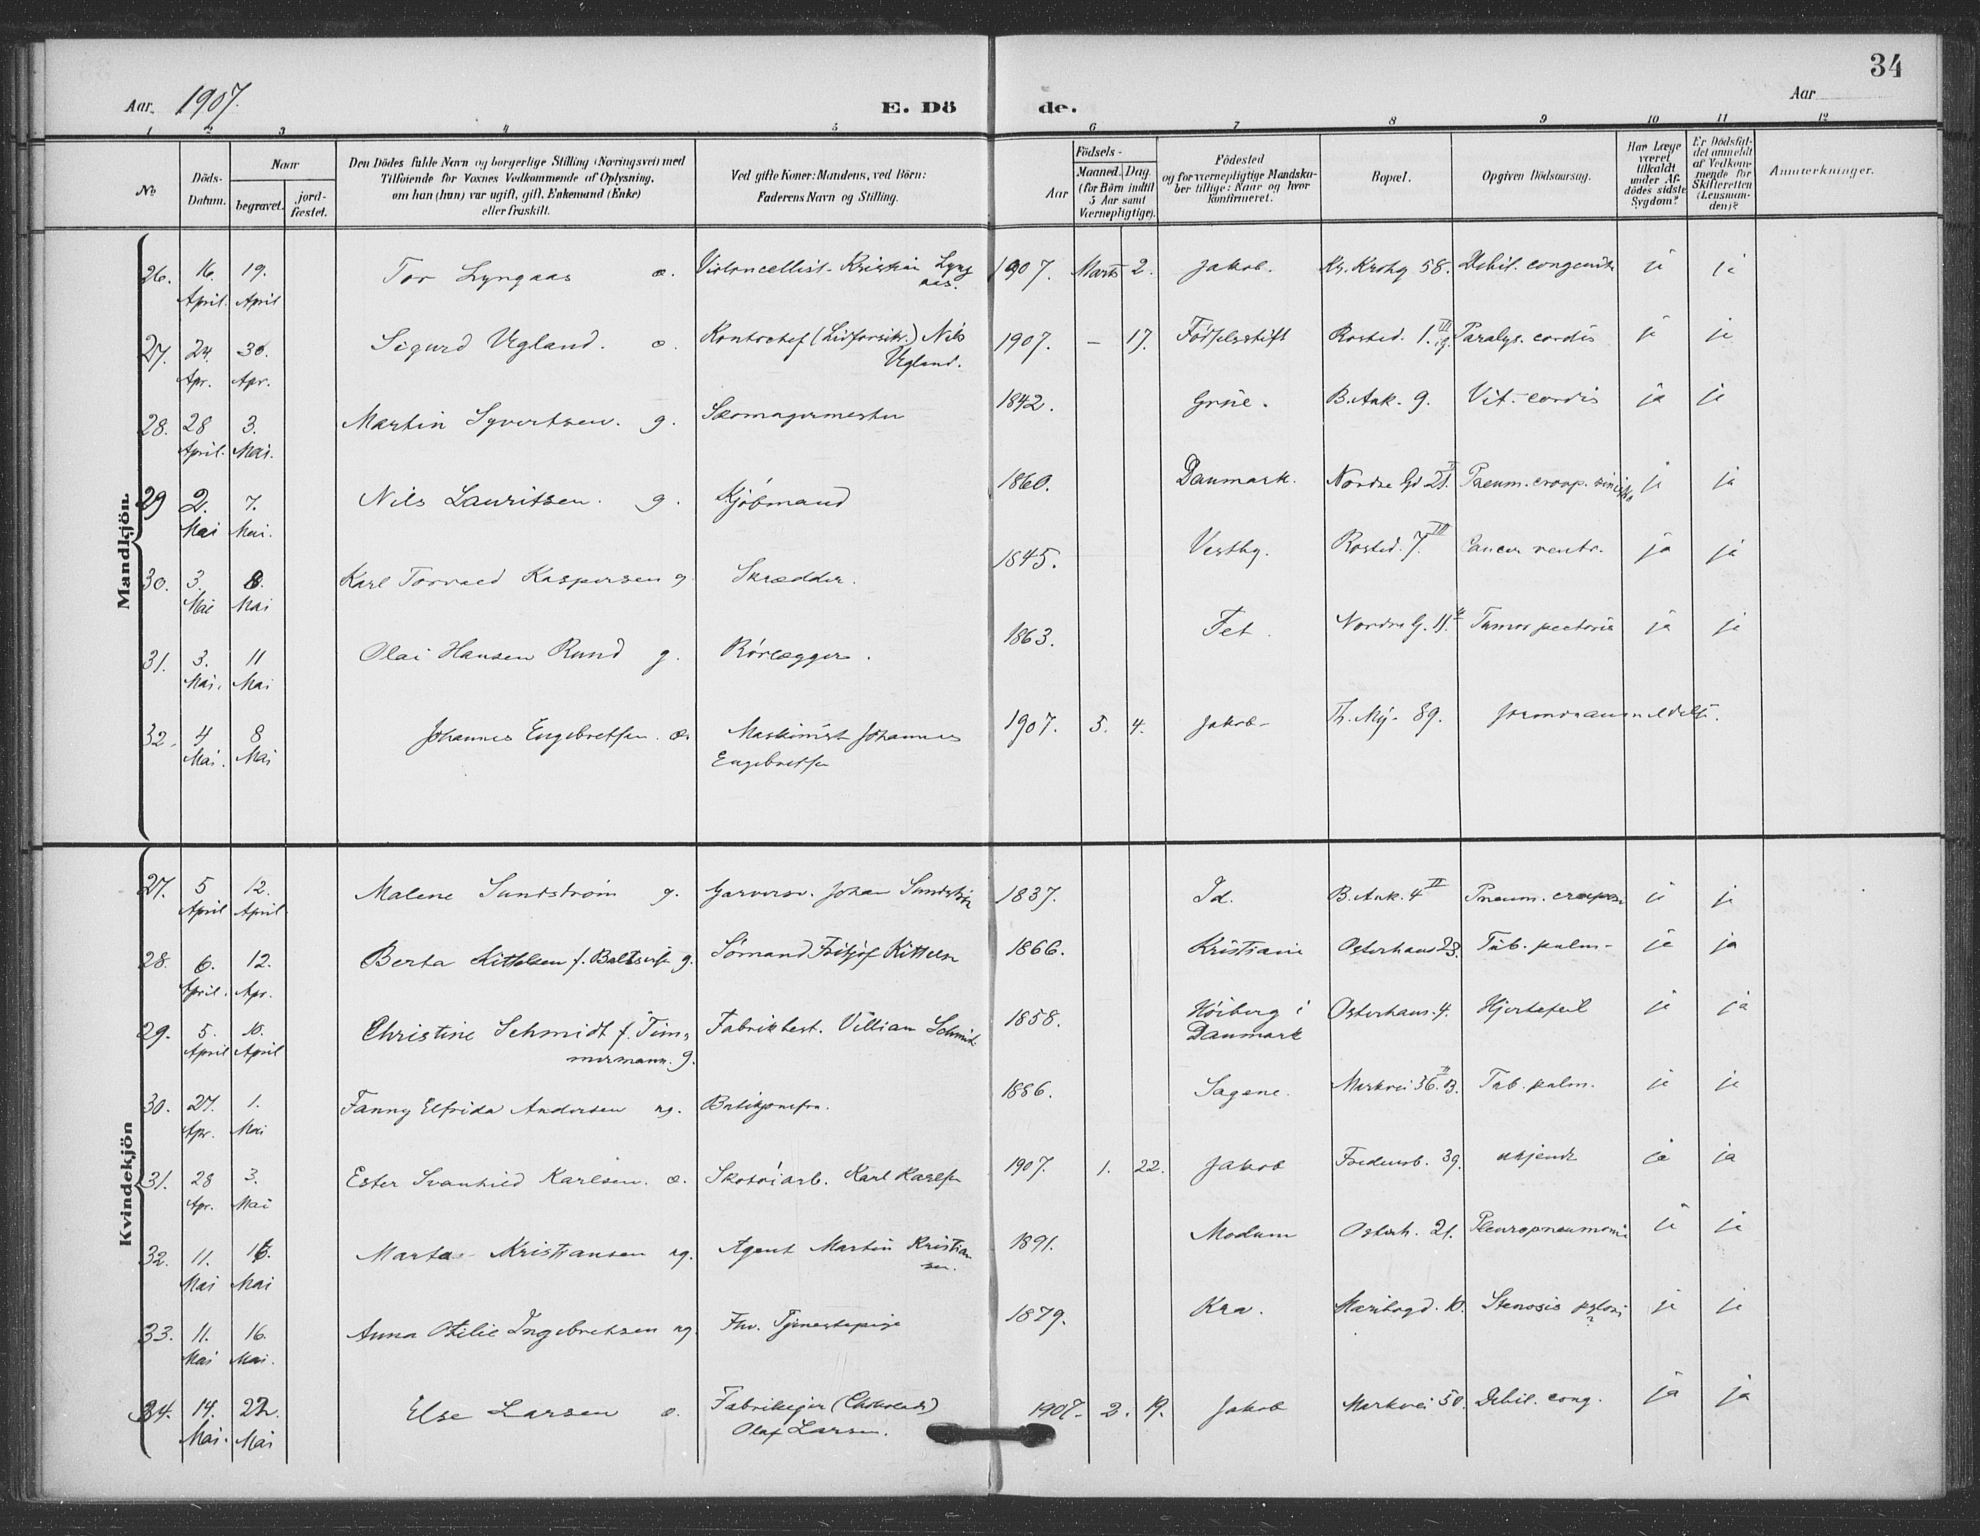 34
Aar 1907. E. Dö de. Aar
1 2 3 4 5 6 7 8 9 10 11 12
No
Döds-Datum.
Naar
begravet.
jord-fæstet.
Den Dödes fulde Navn og borgerlige Stilling (Næringsvei) med
Tilföiende for Voxnes Vedkommende af Oplysning,
om han (hun) var ugift, gift, Enkemand (Enke)
eller fraskilt.
Ved gifte Koner: Mandens, ved Börn:
Faderens Navn og Stilling.
Födsels-
Aar
Maaned. Dag.
(for Börn indtil
5 Aar samt
Værnepligtige).
Födested
og for værnepligtige Mandska-
ber tillige: Naar og hvor
konfirmeret.
Bopæl.
Opgiven Dödsaarsag.
Har Læge
været
tilkaldt
under Af-
dödes sidste
Sygdom?
Er Dödsfal-
det anmeldt
af Vedkom-
mende for
Skifteretten
(Lensman-
den)?
Anmærkninger.
Mandkjön.
26. 16. April 19. April Tor Lyngaas Violoncellist Kristian Lyngaas. 1907. Marts 2. Jakob. Kr. Krohg 58. Debil. congenita ja ja
27. 24. Apr. 30. Apr. Sigurd Ugland. Kontorchef (Livforsikr.) Nils Ugland. 1907. – 17. Födselsstift Rosted. 1. III Paralys. cordis ja ja
28. 28 April. 3. Mai. Martin Syvertsen. g. Skomagermester 1842. Grue. B. Ank. 9. Vit. cordis ja ja
29 2. Mai 7. Mai. Nils Lauritsen. g. Kjöbmand 1860. Danmark. Nordre Gd 21. Pneum. croup. sinistra ja ja
30. 3. Mai 8. Mai Karl Torvald Kaspersen g. Skrædder. 1845. Vestby. Rosted. 7. III Cancer ventr. ja ja
31. 3. Mai. 11 Mai Olai Hansen Rund g. Rörlægger. 1863. Fet. Nordre G. 11. Tumor pectoris ja ja
32. 4 Mai. 8 Mai Johannes Engebretsen. Maskinist Johannes Engebretsen 1907. 5. 4. Jakob Th. My. 89.
Kvindekjön
27. 5 April 12. April Malene Sundström g. Garversv. Johan Sundström 1837. Id. B. Ank. 4 II Pneum. crouposa ja ja
28. 6. April. 12. Apr. Berta Kittelsen f. g. Sömand Fritjof Kittelsen 1866. Kristiania Osterhaus 23. Tub. pulm. ja ja
29. 5. April 10. April Christine Schmidt f. Timmermann. g. Fabrikbest. Villiam Schmidt 1858. Höiberg i Danmark Osterhaus. 4. Hjertefeil ja ja
30. 27. Apr. 1. Mai Fanny Elfrida Andersen ug. 1886. Sagene. Markvei 36. B. II Tub. pulm. ja ja
31. 28 Apr. 3. Mai Ester Svanhild Karlsen. Skotöiarb. Karl Karlsen 1907. 1. 22. Jakob Fredensb. 39. ukjendt ja ja
32. 11. Mai 16. Mai Marta Kristiansen ug. Agent Martin Kristiansen. 1891. Modum Osterh. 21. Pleuropneumoni ja ja
33. 11. Mai 16. Mai. Anna Otilie Ingebretsen ug. Fhv. Tjenestepige 1879. Kra. Maribogd. 10. Stenosis pylori ja ja
34. 14. Mai. 22. Mai Else Larsen Fabrikeier (Chokolade) Olaf Larsen. 1907. 2. 19. Jakob Markvei 50. Debil. cong. ja ja